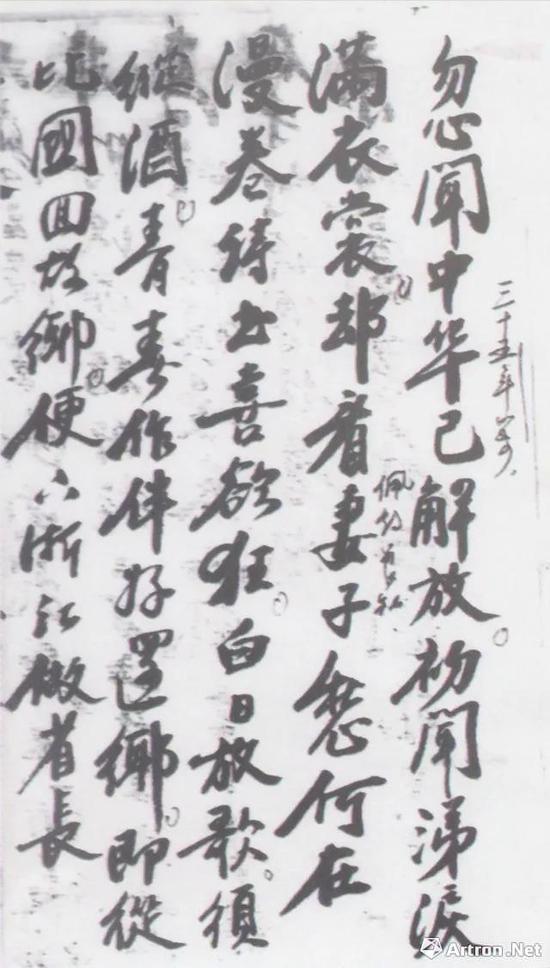 忽聞中华已解放。初聞涕淚
三十五年
滿衣裳。却看妻子愁何在
漫卷詩书喜欲狂。白日放歌。須
縱酒。青春作伴好還鄉。即從
比國回故鄉。便下浙江做省長
Artron.Net